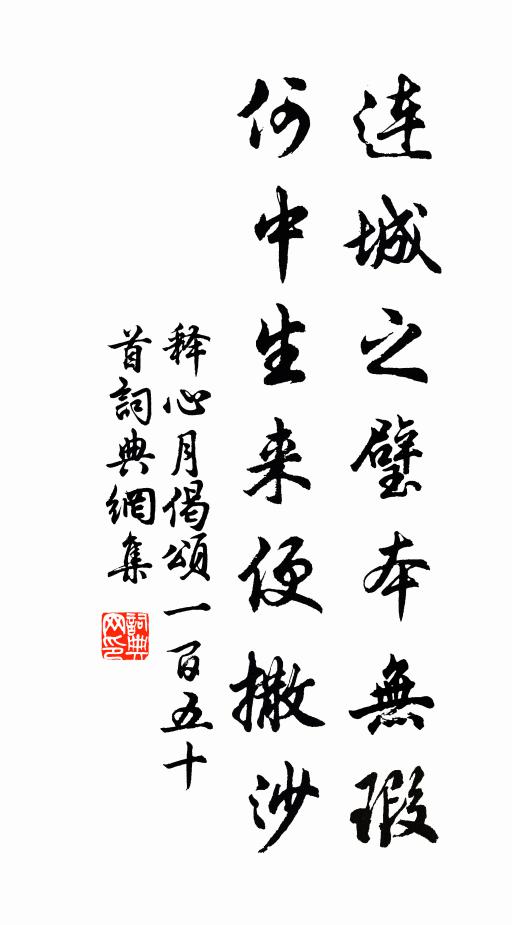 连城之璧本無瑕
何中生来便撒沙
释心月偈頌一百五十
首詞典網集
詞典网印